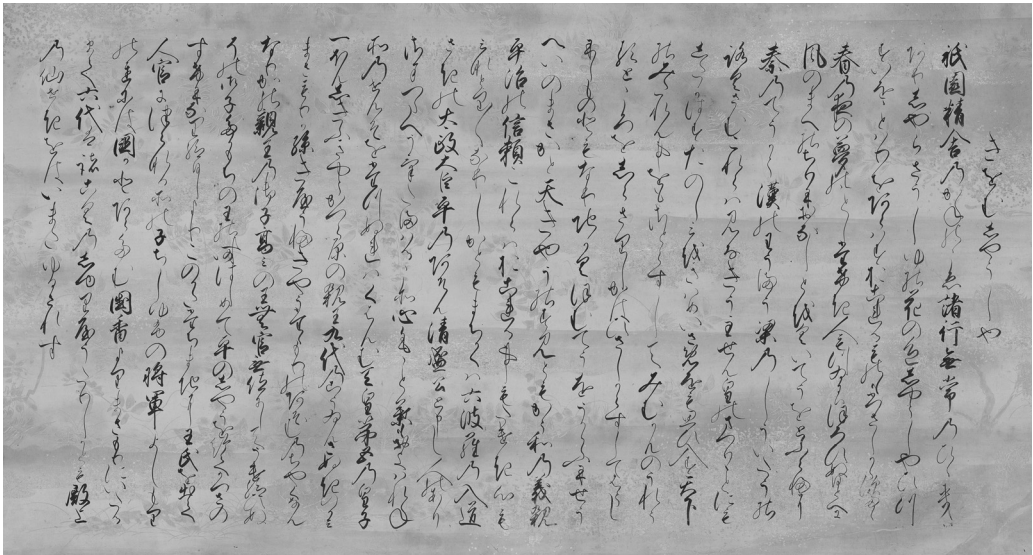 きをんしやうしや
祇園精舎乃かねのこゑ諸行無常乃ひゝきあり
しやらさうしゆの花の色しやうしやひつ
すいのことわりをあらはすおこれるものひさしからす
春乃夜の夢のことしたけき人もつゐにはほろひぬひとへに
風のまへのちりにおなしとをくいてうをとふらふに
秦乃てうかう漢のわうまう梁乃しうい たうの
禄さんこれらはみなきうしゆせんくわうのまつりことにも
したかはすたのしみをきはめいさめをもおもひいれす天下
のみたれん事をもさとらすしてみむかんのうれふ
るところをしらさりしかはひさしからすしてほろひ
にしものともなりちかくほんてうをうかゝふにせう
へいのまさかと天きやうのすみともかう和乃義親
平治の信頼これらはおこれる事もたけき心も
みなとり〱なりしかともまちかくは六波羅乃入道
さきの太政大臣平乃あそん清盛公と申し人のあり
さまつたへうけたまはるこそ心もことはもおよはれね
その せんそをたつぬれはくはんむ天皇第五乃皇子
一ほんしきふきやうかつら原の親王九代のこうゐんさぬきのかみ
まさもりか孫きやうふきやうたゝもりのあそんのちやくなん
なりかの親王乃御子高みの王無官無位にしてうせ給ぬ
その御子たかもちの王の時はしめて平のしやうを給てかつさの
すけになり給しよりこのかたたちまちに王氏を出て
人官につらなるその子ちんしゆふの将軍よしもち
のちには国かとあらたむ国香よりまさもりにいたる
まて六代は諸こく乃しゆりやうたりしかとも殿上
乃仙せきをはいまたゆるされす